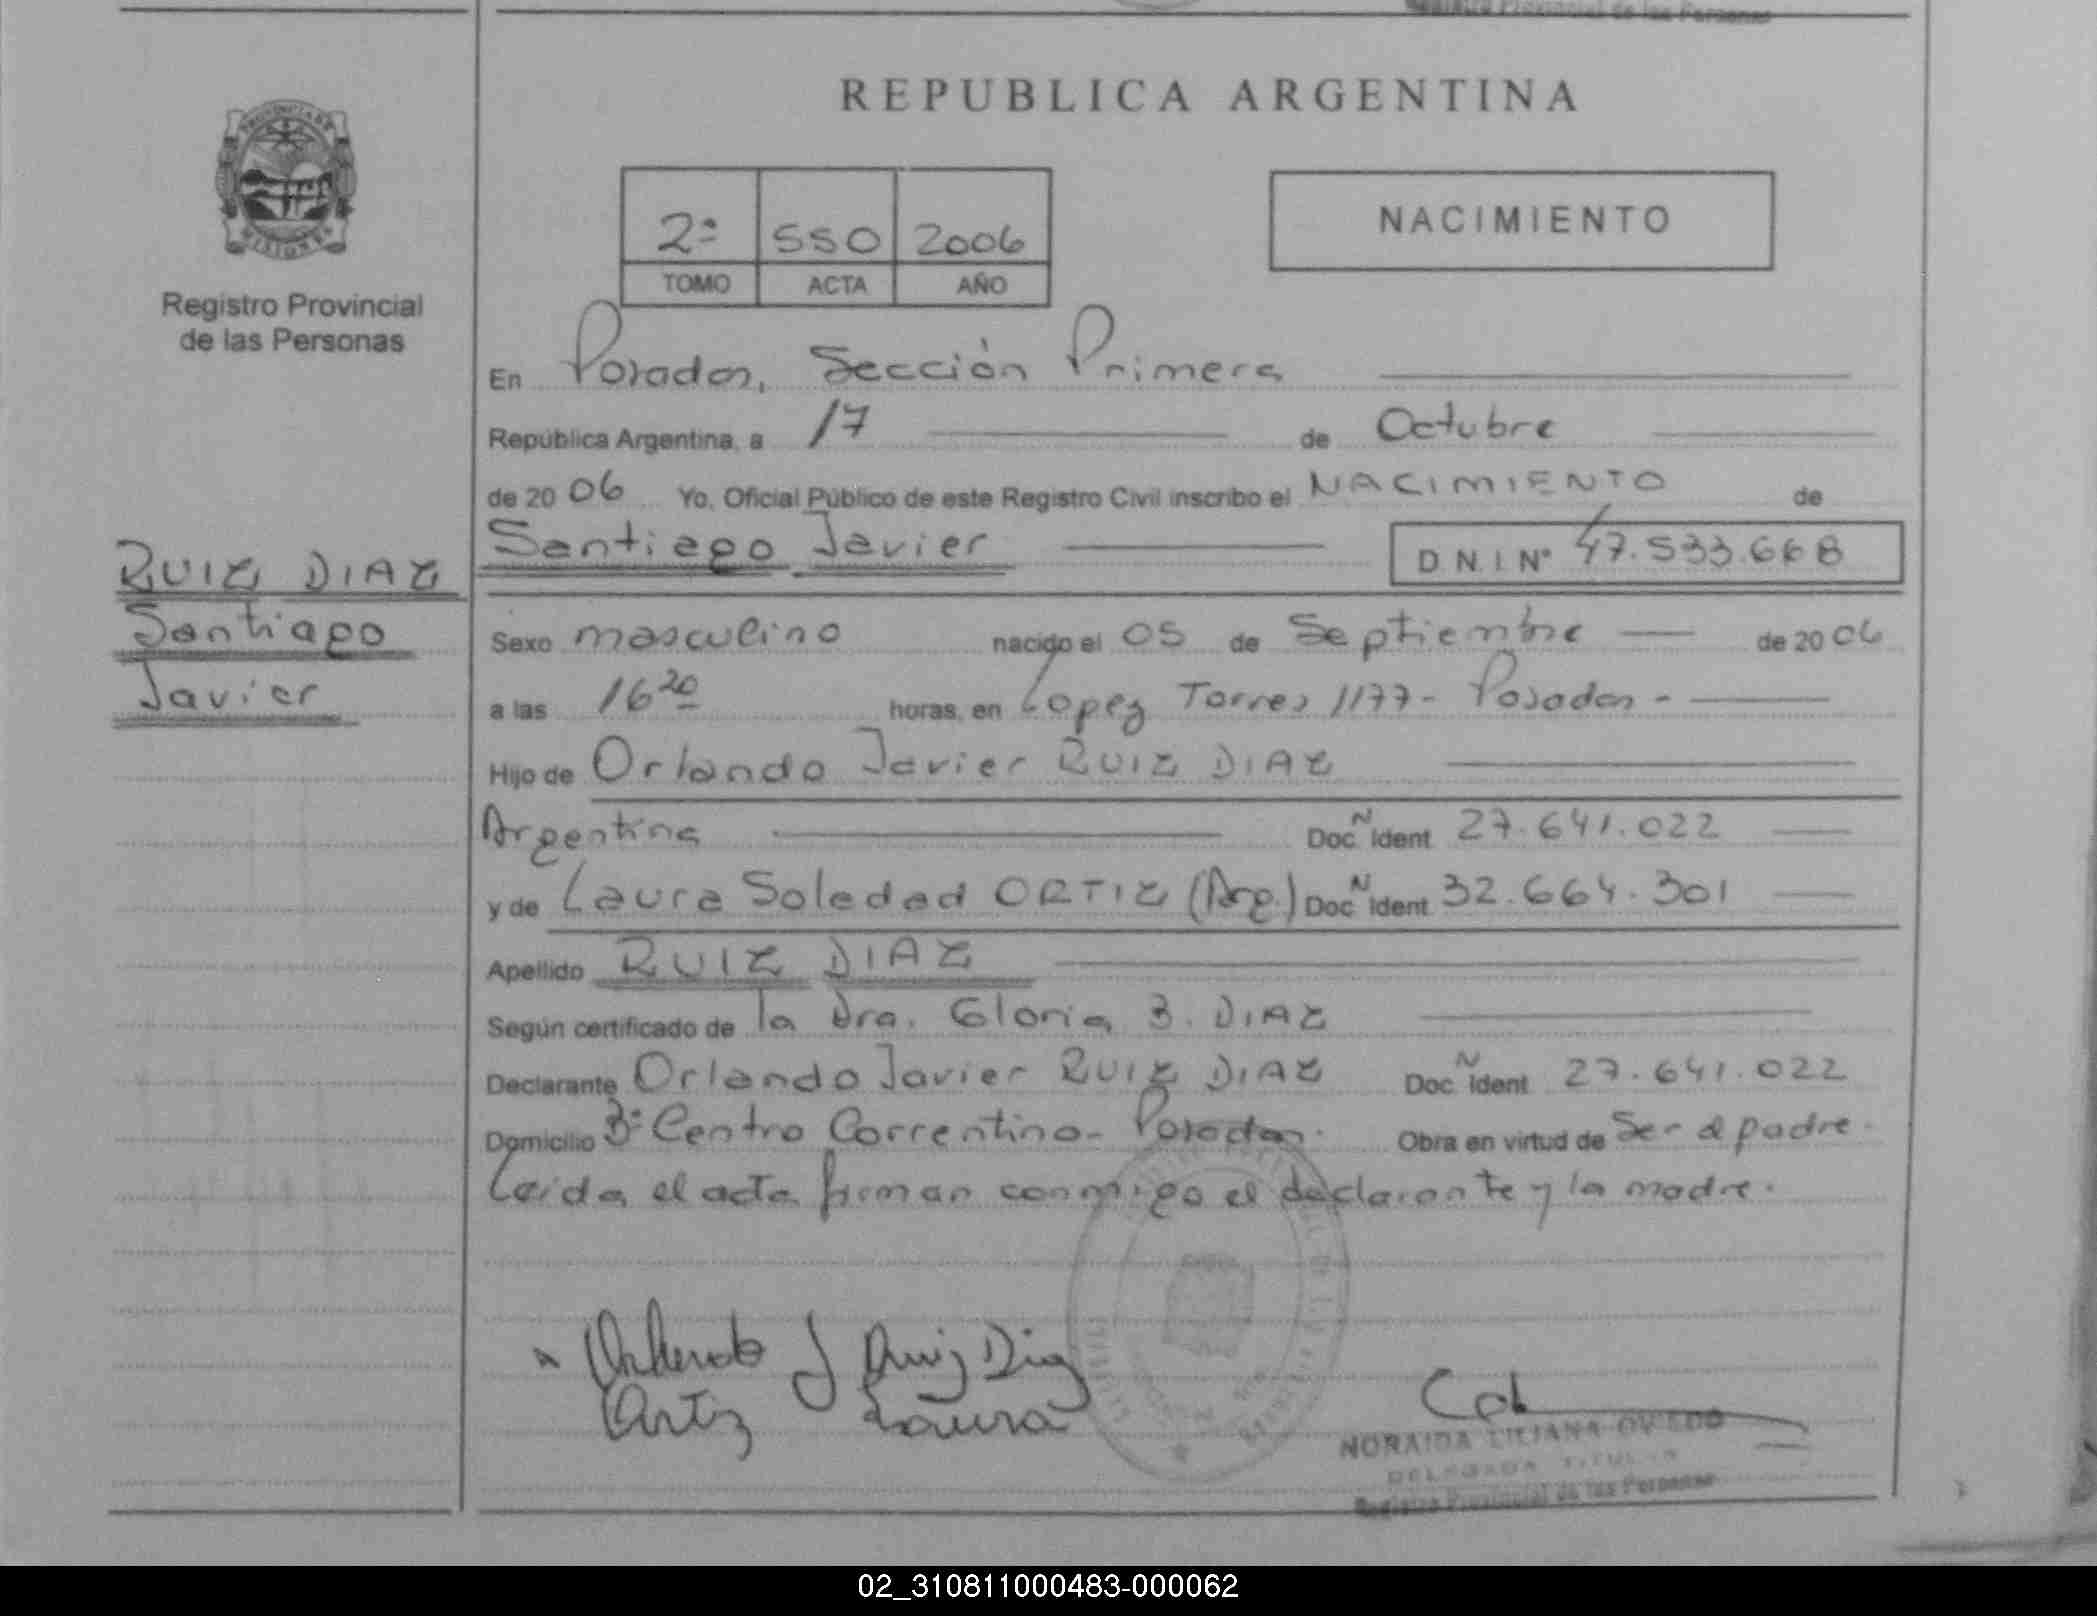 Registro Provincial de las Personas
REPUBLICA ARGENTINA
PROVINCIA DE
MISIONES
Registro Provincial
de las Personas
2º 550 2006
TOMO ACTA AÑO
NACIMIENTO
En Posadas, Sección Primera
República Argentina, a 17 de Octubre
de 20 06 Yo, Oficial Público de este Registro Civil inscribo el NACIMIENTO de
Santiago Javier D.N.I. Nº 47.533.668
RUIZ DIAZ
Santiago
Javier
Sexo masculino nacido el 05 de Septiembre de 20 06
a las 16 20 horas, en Lopez Torres 1177 - Posadas -
Hijo de Orlando Javier RUIZ DIAZ
Argentina Doc. N Ident 27.641.022
y de Laura Soledad ORTIZ (Arg.) Doc. N Ident 32.664.301
Apellido RUIZ DIAZ
Según certificado de la Dra. Gloria B. DIAZ
Declarante Orlando Javier RUIZ DIAZ Doc. N Ident 27.641.022
Domicilio Bº Centro Correntino - Posadas. Obra en virtud de Ser el padre.
Leida el acta firman conmigo el declarante y la madre.
Orlando J Ruiz Diaz
Ortiz Laura
NORAIDA LILIANA OVIEDO
DELEGADA TITULAR
Registro Provincial de las Personas
02_310811000483-000062